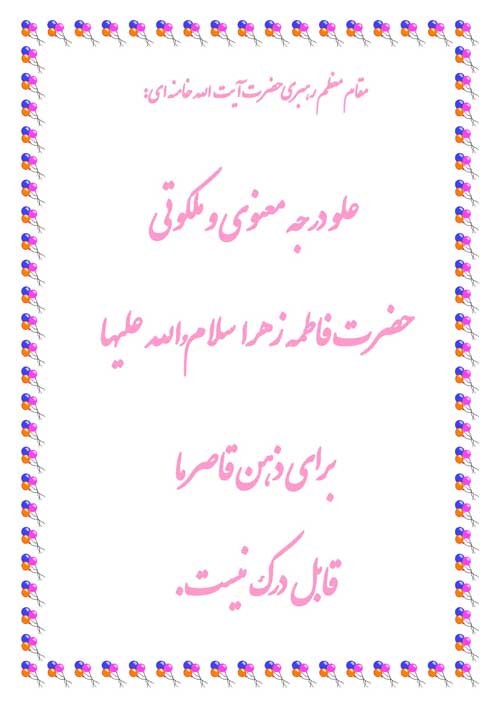 مقام معظم رهبری حضرت آیت الله خامنه ای:
علو درجه معنوی و ملکوتی
حضرت فاطمه زهرا سلام الله علیها
برای ذهن قاصر ما
قابل درک نیست.